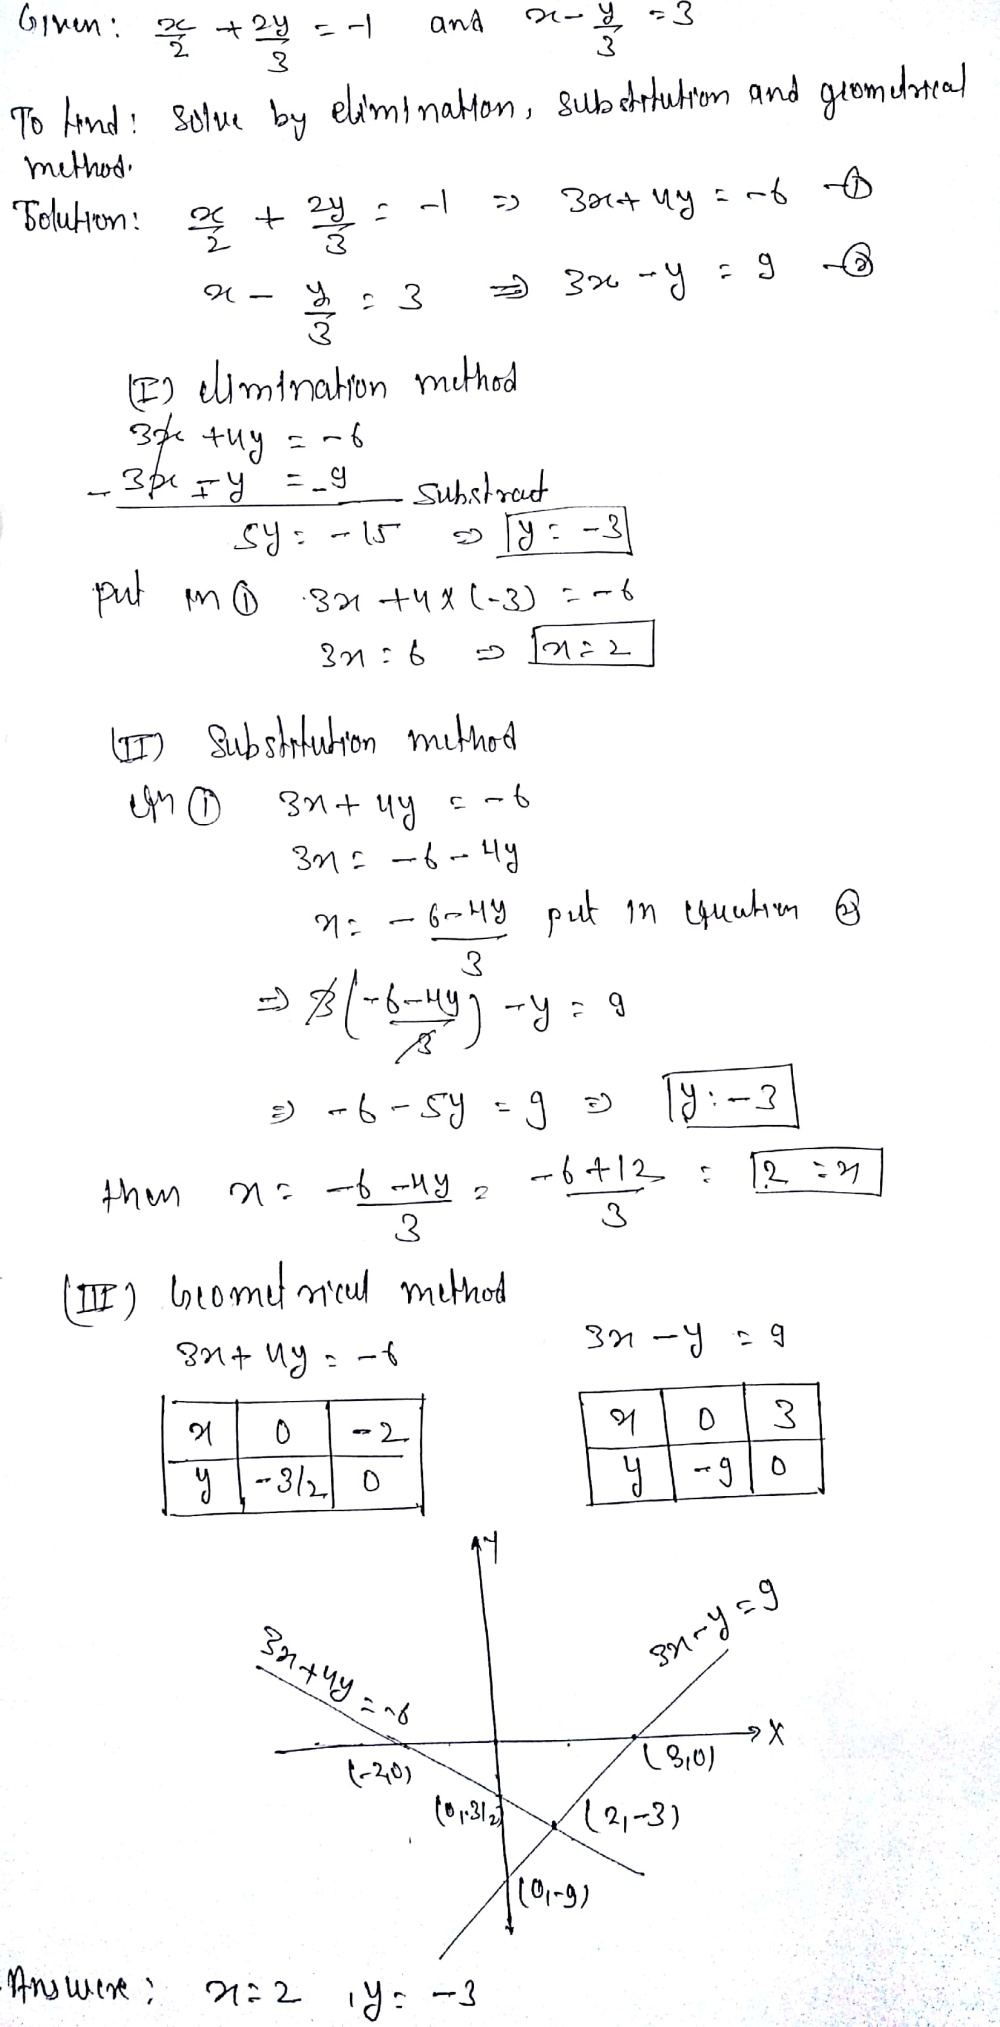 Given: x/2 + 2y/3 = -1 and x - y/3 = 3
To find: Solve by elimination, substitution and geometrical
method.
Solution: x/2 + 2y/3 = -1 ⇒ 3x + 4y = -6 -①
x - y/3 = 3 ⇒ 3x - y = 9 -②
(I) elimination method
3x + 4y = -6
- 3x ∓ y = -9 Substract
5y = -15 ⇒ y = -3
put in ① 3x + 4 × (-3) = -6
3x = 6 ⇒ x = 2
(II) Substitution method
eqn ① 3x + 4y = -6
3x = -6 - 4y
x = -6-4y/3 put in equation ②
⇒ 3(-6-4y/3) - y = 9
⇒ -6 - 5y = 9 ⇒ y = -3
then x = -6-4y/3 = -6+12/3 = 2 = x
(III) Geometrical method
3x + 4y = -6 3x - y = 9
x 0 -2 x 0 3
y -3/2 0 y -9 0
Y
3x+4y=-6 3x-y=9
X
(-2,0) (3,0)
(0,-3/2) (2,-3)
(0,-9)
Answere: x = 2, y = -3